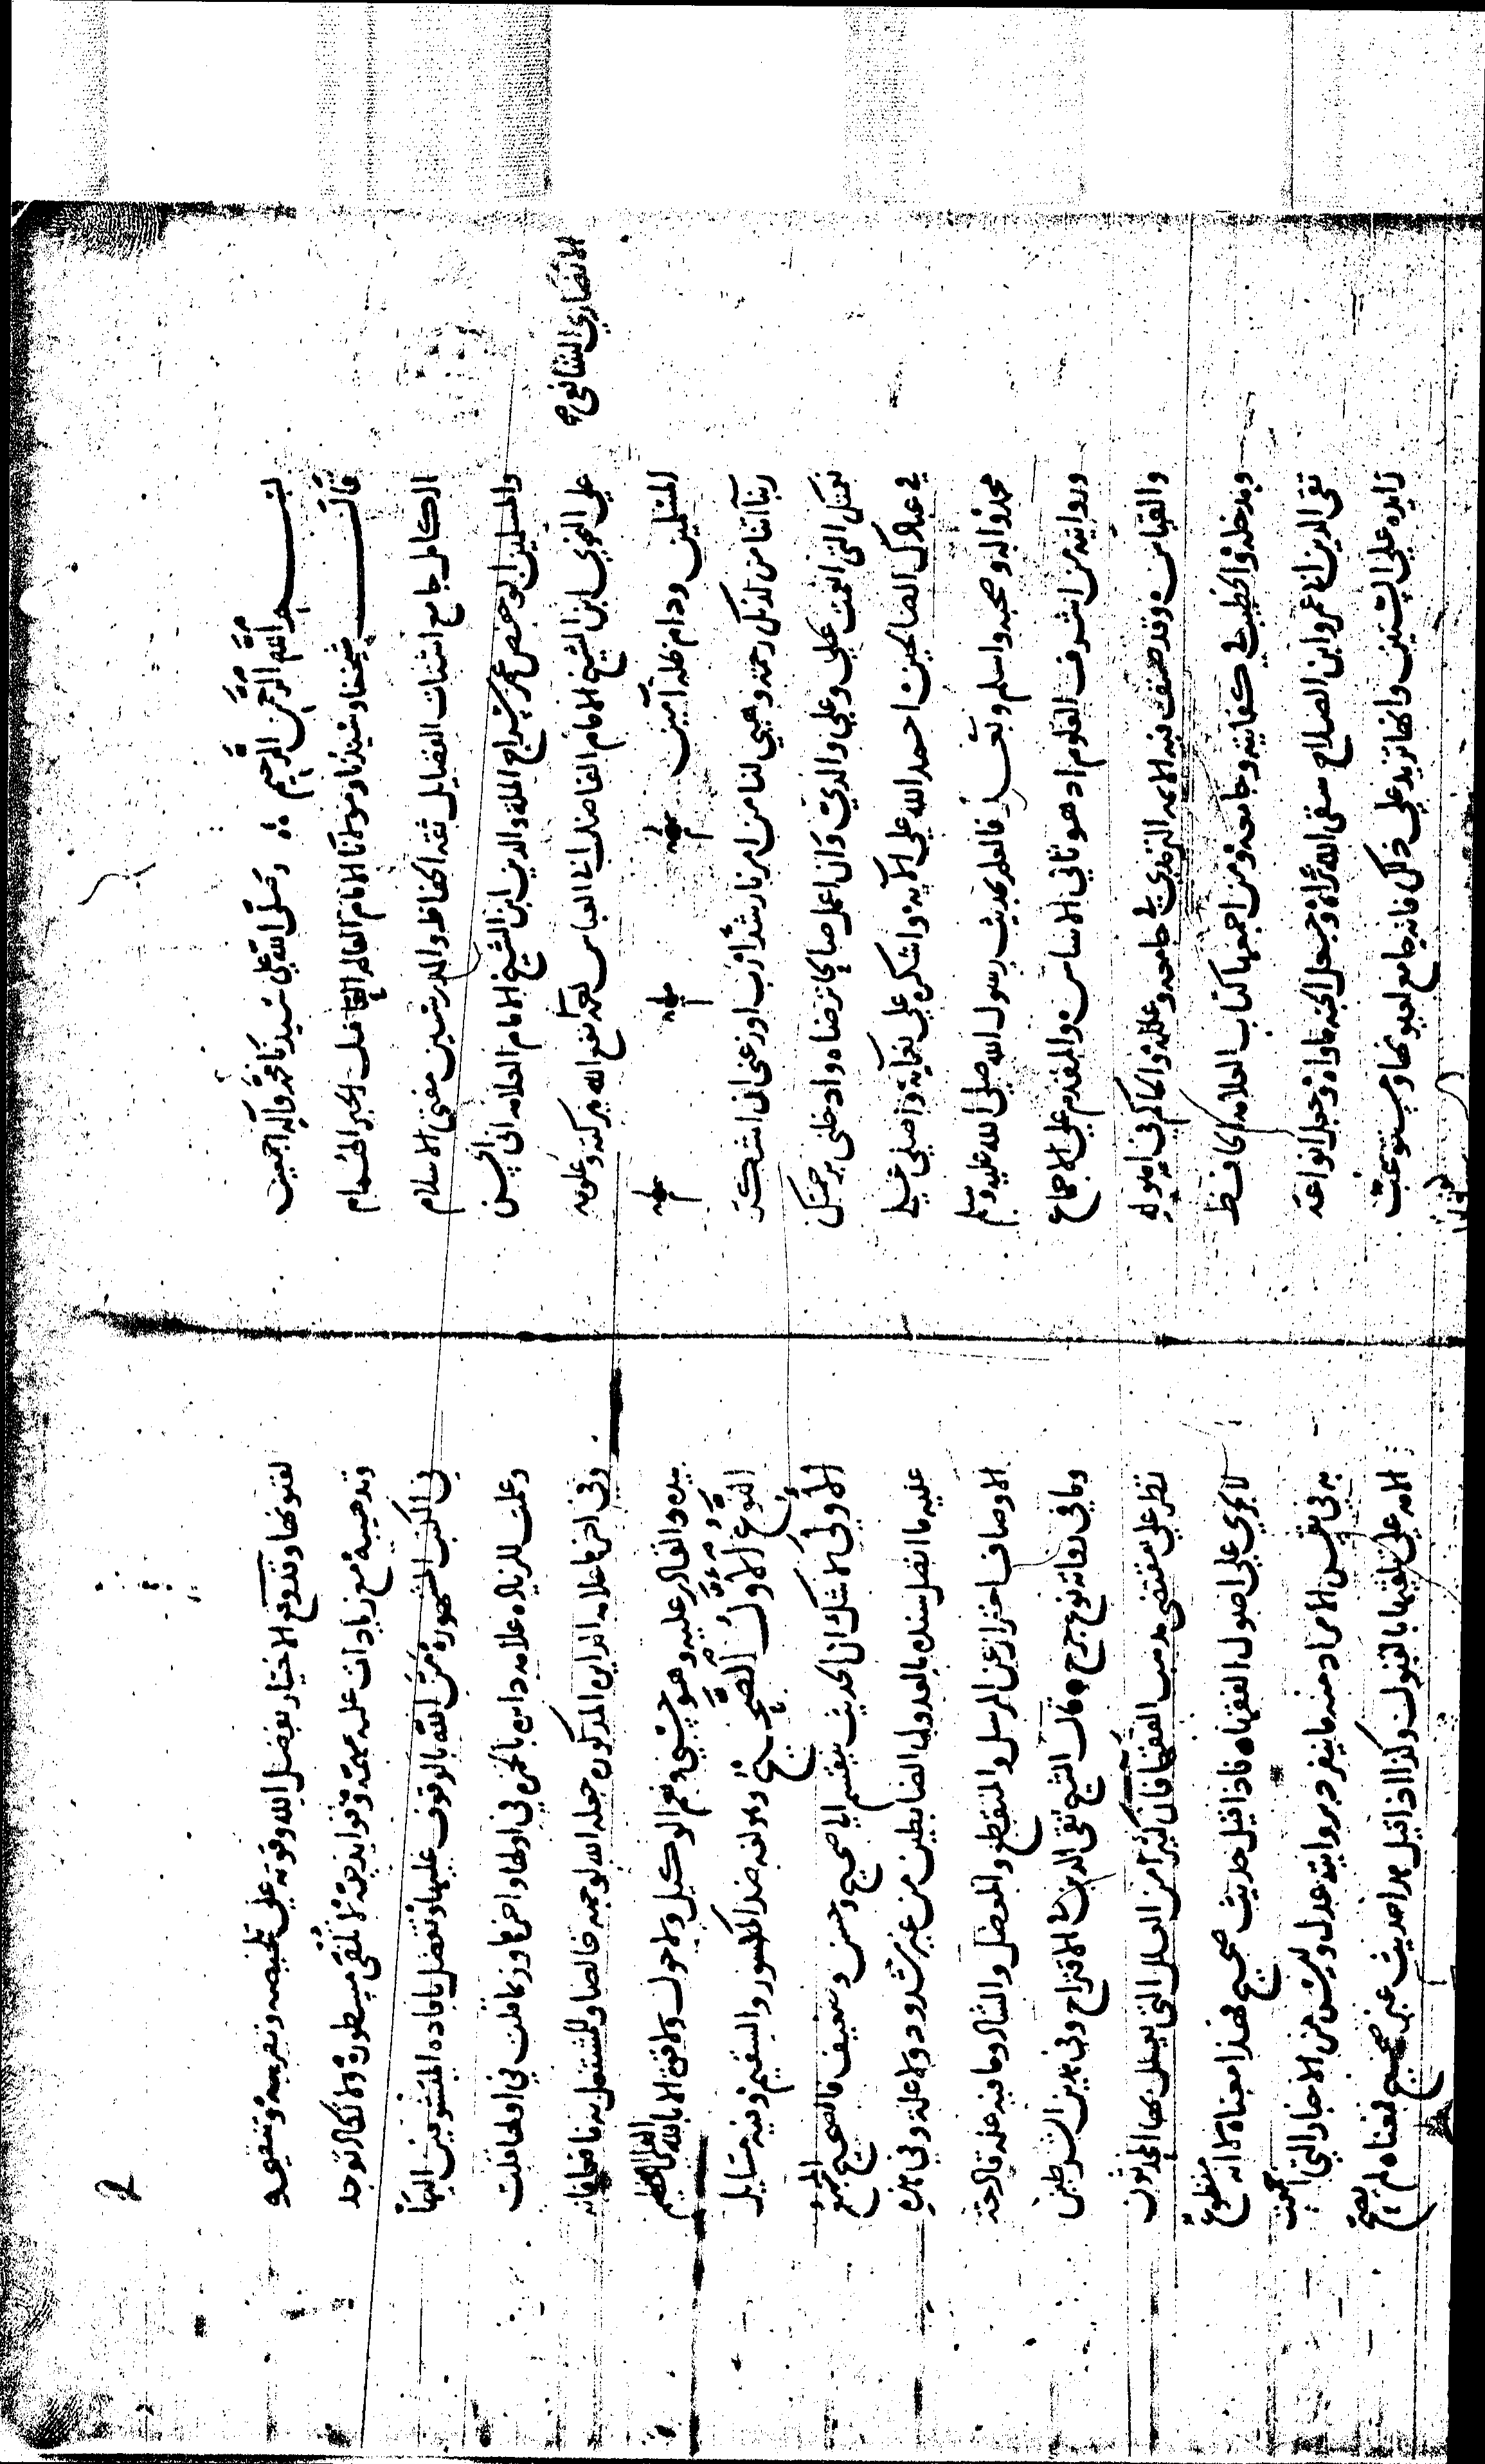 بسم الله الرحمن الرحيم وصلى الله على سيدنا محمد وآله اجمعين
قال شيخنا وسيدنا ومولانا الامام العالم العامل الحبر الهمام
الكامل جامع اشتات الفضايل ثقة الحفاظ والمدرسين مفتي الاسلام
والمسلمين ابو حفص عمر سراج الملة والدين ابن الشيخ الامام العلامه ابي الحسن
علي النحوي ابن الشيخ الامام الفاضل ابي العباس احمد نفع الله ببركته وعلومه
الانصاري الشافعي
المسلمين ودام ظله آمين
ربنا آتنا من لدنك رحمة وهيي لنا من امرنا رشدا رب اوزعني ان اشكر
نعمتك التي انعمت علي وعلى والدي وان اعمل صالحا ترضاه وادخلني برحمتك
في عبادك الصالحين احمد الله على آلايه واشكره على نعمايه واصلي على
محمد وآله وصحبه واسلم وبعد فالعلم بحديث رسول الله صلى الله عليه وسلم
وروايته من اشرف العلوم اذ هو ثاني الاساس والمقدم على الاجماع
والقياس وقد صنف فيه الايمه الترمذي في جامعه وعلله والحاكم في اصوله
ومدخله والخطيب في كفايته وجامعه ومن اجمعها كتاب العلامه الحافظ
تقي الدين ابي عمرو ابن الصلاح سقى الله ثراه وجعل الجنه ماواه وجعل انواعه
زايده على الستين وانها تزيد على ذلك فانه جامع لعيونها ومستوعب
لفنونها
لفنونها وقد وقع الاختيار بفضل الله وقوته على تلخيصه وتقريبه وتنقيحه
وتهذيبه مع زيادات عليه مهمة وفوايد جمة لا تلفى مسطوره ولا تكاد توجد
في الكتب المشهوره من الله بالوقوف عليها وتفضل بافاده المتشوفين اليها
وعلمت للزياده علامه داير بالحمره في اولها واخرها وربما قلت في اولها قلت
وفي اخرها علامه الداير المذكوره جعله الله لوجهه خالصا وللمشتغل به نافعا فانه
بيده والقادر عليه وهو حسبي ونعم الوكيل ولا حول ولا قوة الا بالله العلي العظيم
النوع الاول الصحيح وهو لغة ضد المكسور والسقيم وفيه مسايل
الاولى لا شك ان الحديث ينقسم الى صحيح وحسن وضعيف فالصحيح المجمع
عليه ما اتصل سنده بالعدول الضابطين من غير شذوذ ولا علة وفي هذه
الاوصاف احتراز عن المرسل والمنقطع والمعضل والشاذ وما فيه علة قادحة
وما في رواته نوع جرح قال الشيخ تقي الدين في الاقتراح وفي هذين الشرطين
نظر على مقتضى مذهب الفقها فان كثيرا من العلل التي يعلل بها المحدثون
لا تجري على اصول الفقهاء فاذا قيل حديث صحيح فهذا معناه لا انه مقطوع
به في نفس الامر اذ منه ما ينفرد بروايته عدل وليس من الاخبار التي اجمعت
الامه على تلقيها بالقبول وكذا اذا قيل هذا حديث غير صحيح فمعناه لم يصح